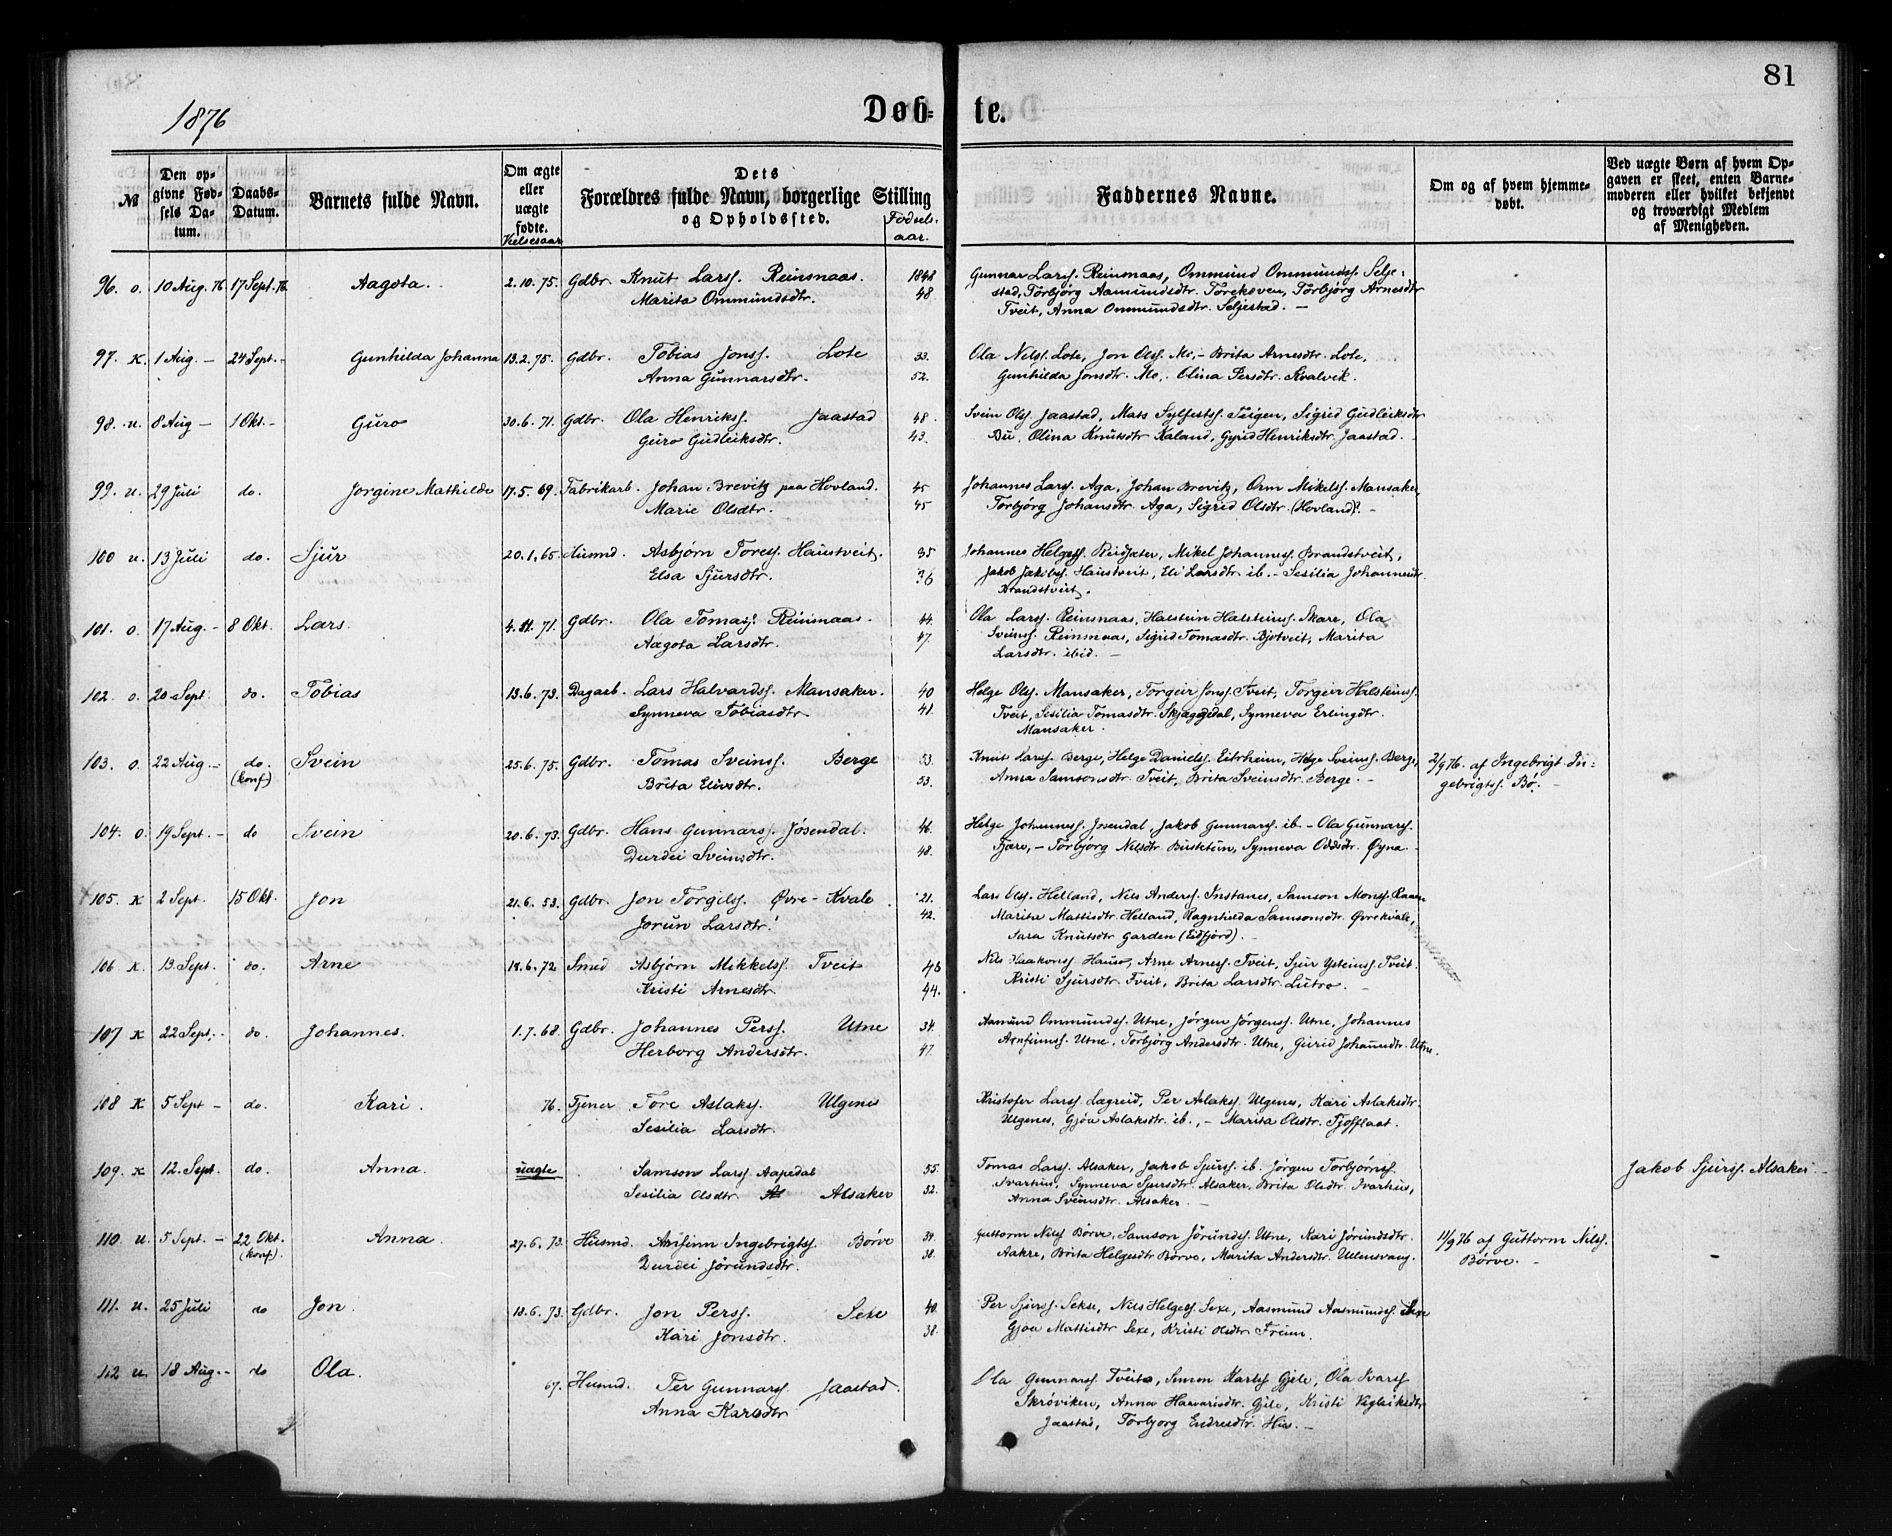 81
1876
Døb- te.
№
Den op-
givne Fød-
sels Da-
tum.
Daabs-
Datum.
Barnets fulde Navn.
Om ægte
eller
uægte
fødte.
Vielsesaar
Dets
Forældres fulde Navn, borgerlige Stilling
og Opholdssted.
Fødsels-
aar.
Faddernes Navne.
Om og af hvem hjemme-
døbt.
Ved uægte Børn af hvem Op-
gaven er skeet, enten Barne-
moderen eller hvilket bekjendt
og troværdigt Medlem
af Menigheden.
96. o. 10 Aug. 76 17 Sept. 76. Aagota. 2.10.75. Gdbr. Knut Larss. Reinsnaas. 1848
Marita Ommundsdtr. 48
Gunnar Larss. Reinsnaas, Ommund Ommundss. Selje-
stad, Torbjørg Aamundsdtr. Torekoven, Torbjørg Arnesdtr
Tveit, Anna Ommundsdtr. Seljestad. –
97. K. 1 Aug. – 24 Sept. – Gunhilda Johanna 13.2.75. Gdbr. Tobias Jonss. Lote 33.
Anna Gunnarsdtr. 52.
Ola Nelss. Lote, Jon Olss. Mo, – Brita Arnesdtr. Lote,
Gunhilda Jonsdtr. Mo, Olina Persdtr. Kvalvik.
98. u. 8 Aug – 1 Okt. – Guro 30.6.71. Gdbr. Ola Henrikss. Jaastad 48.
Guro Gudleiksdtr. 43.
Svein Olss. Jaastad, Mats Sylfestss. Teigen, Sigrid Gudleiksdtr
Bu, Olina Knutsdtr Kaland, Gyrid Henriksdtr. Jaastad.
99. u. 29 Juli do. Jorgine Mathilde 17.5.69. Fabrikarb. Johan Brevitz paa Hovland. 45
Marie Olsdtr. 45
Johannes Larss. Aga, Johan Brevitz, Orm Mikelss. Mansaker,
Torbjørg Johansdtr. Aga, Sigrid Olsdtr. (Hovland). –
100 u. 13 Juli do. Sjur 20.1.65. Husmd. Asbjørn Toress. Haustveit. 35
Elsa Sjursdtr. 36
Johannes Helgess. Reidsæter, Mikel Johanness. Brandstveit,
Jakob Jakobss. Haustveit, Eli Larsdtr. ib. – Sesilia Johannesdtr.
Brandstveit.
101. o. 17 Aug. – 8 Okt. Lars. 4.11.71. Gdbr. Ola Tomass. Reinsnaas. 44.
Aagota Larsdtr. 47.
Ola Larss. Reinsnaas, Halstein Halsteinss. Skare, Ola
Sveinss. Reinsnaas, Sigrid Tomasdtr. Bjotveit, Marita
Larsdtr. ibid. –
102. o. 20 Sept. do. Tobias 13.6.73. Dagarb. Lars Halvardss. Mansaker. 40
Synneva Tobiasdtr. 48.
Helge Olss. Mansaker, Torgeir Jonss. Tveit, Torgeir Halsteinss.
Tveit, Sesilia Tomasdtr. Skjæggedal, Synneva Erlingdtr.
Mansaker.
103. o. 22 Aug. – do. Svein 25.6.75. Gdbr. Tomas Sveinss. Berge 53.
(konf) Brita Elivsdtr. 53.
Knut Larss. Berge, Helge Danielss. Eitrheim, Helge Sveinss. Berge,
Anna Samsonsdtr. Tveit, Brita Sveinsdtr. Berge. –
2/9 76. af Ingebrigt In-
gebrigtss. Bø. –
104. o. 19 Sept. – do Svein 20.6.73. Gdbr. Hans Gunnarss. Jøsendal. 46.
Durdei Sveinsdtr. 48.
Helge Johanness. Jøsendal, Jakob Gunnarss. ib. – Ola Gunnarss.
Fjære, – Torbjørg Nilsdtr. Busketun, Synneva Oddsdtr. Øyna.
105. K 2 Sept. 15 Okt. Jon 21.6.53. Gdbr. Jon Torgilss. Øvre-Kvale. 21.
Jorun Larsdtr. 42.
Lars Olss. Helland, Nils Anderss. Instanes, Samson Monss.
Marita Mattisdtr. Helland, Ragnhilda Samsonsdtr. Øvrekvale,
Sara Knutsdtr. Garden (Eidfjord). –
106 K. 13. Sept. do. Arne 18.6.72 Smed Asbjørn Mikkelss. Tveit 46
Kristi Arnesdtr. 44.
Nils Haakonss. Hauso, Arne Arness. Tveit, Sjur Ysteinss. Tveit.
Kristi Sjursdtr. Tveit, Brita Larsdtr. Lutro. –
107 K 22 Sept. – do. Johannes. 1.7.68. Gdbr. Johannes Perss. Utne 34.
Herborg Andersdtr. 47.
Aamund Ommundss. Utne, Jørgen Jørgenss. Utne, Johannes
Arnfinnss. Utne, Torbjørg Andersdtr. Utne, Gurid Johannsdtr. Utne.
108 K 5 Sept – do. Kari. 76. Tjener Tore Aslakss. Ulgenes
Sesilia Larsdtr.
Kristofer Larss. Lægreid, Per Aslakss. Ulgenes, Kari Aslaksdtr.
Ulgenes, Gjøa Aslaksdtr. ib., – Marita Olsdtr. Tjofflaat.
109. K 12. Sept. do. Anna. uægte Samson Larss. Aapedal 55.
Sesilia Olsdtr. Alsaker 32.
Tomas Larss. Alsaker, Jakob Sjurss. ib. Jørgen Torbjørnss.
Svarhus, Synneva Sjursdtr. Alsaker, Brita Olsdtr. Ivarhus,
Anna Sveinsdtr. Alsaker. –
Jakob Sjurss. Alsaker. –
110 u. 5 Sept. – 22 Okt. Anna. 27.6.73. Husmd. Arnfinn Ingebrigtss. Børve 34.
(konf). Durdei Jørundsdtr. 38.
Guttorm Nilss Børve, Samson Jørundss. Utne, Kari Jørundsdtr.
Aakre, Brita Helgesdtr Børve, Marita Andersdtr. Ullensvang.
11/9 76 af Guttorm Nilss.
Børve. –
111. u. 25 Juli do Jon. 13.6.73. Gdbr. Jon Perss. Sexe 40.
Kari Jonsdtr. 38.
Per Sjurss. Sekse, Nils Helgess. Sexe, Aasmund Aasmundss. Sexe
Gjøa Mattisdtr Sexe, Kristi Olsdtr Freim.
112 u. 18 Aug. – do Ola. 67. Husmd. Per Gunnarss. Jaastad.
Anna Karlsdtr
Ola Gunnarss. Tveito, Simon Gjele, Ola Ivarss
Skrøviken, Anna Haavarsdtr. Gjele, Kristi Vigleiksdtr
Jaastad, Torbjorg Endresdtr. Hus. –